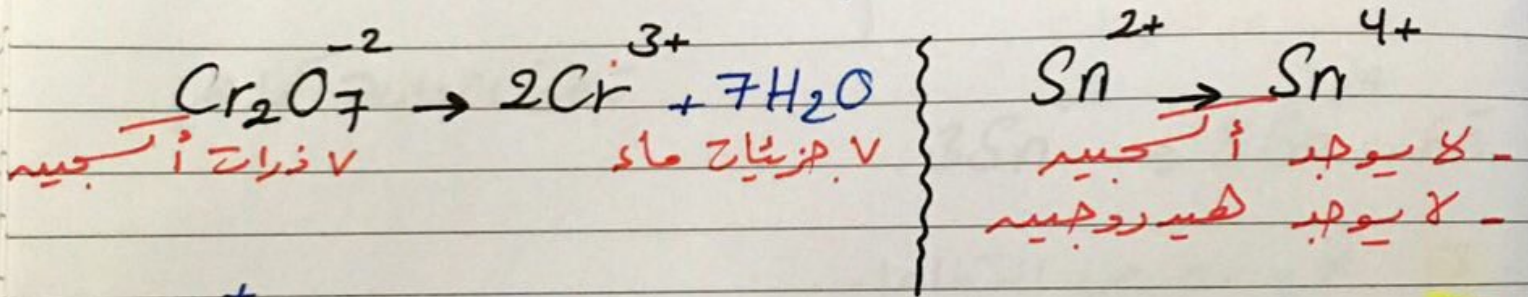 Cr₂O₇⁻² → 2Cr³⁺ + 7H₂O
٧ ذرات أكسجين
٧ جزيئات ماء
Sn²⁺ → Sn⁴⁺
- لا يوجد أكسجين
- لا يوجد هيدروجين